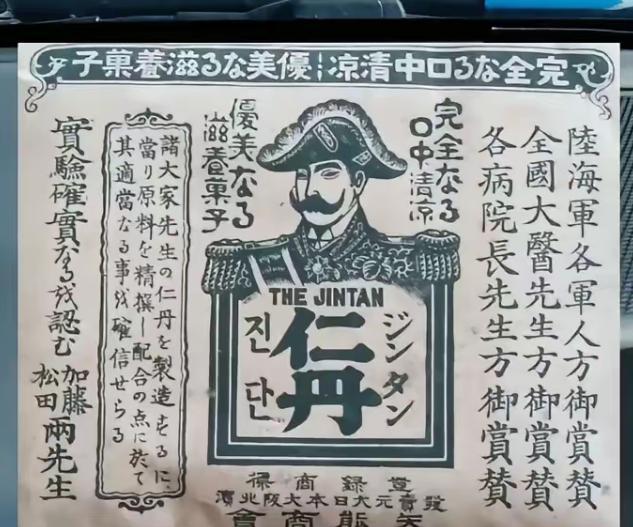 完全なる口中清凉 優美なる滋養菓子
陸海軍各軍人方御賞賛
全國大醫先生方御賞賛
各病院長先生方御賞賛
完全なる
口中清凉
優美なる
滋養菓子
THE JINTAN
ジンタン
仁丹
진단
登録商標
發賣元大日本大阪北濱
商會
諸大家先生の仁丹を製造せるに
當り原料を精撰し配合の点に於て
其適當なる事を確信せらる
實驗確實なるを認む
加藤
松田
兩先生